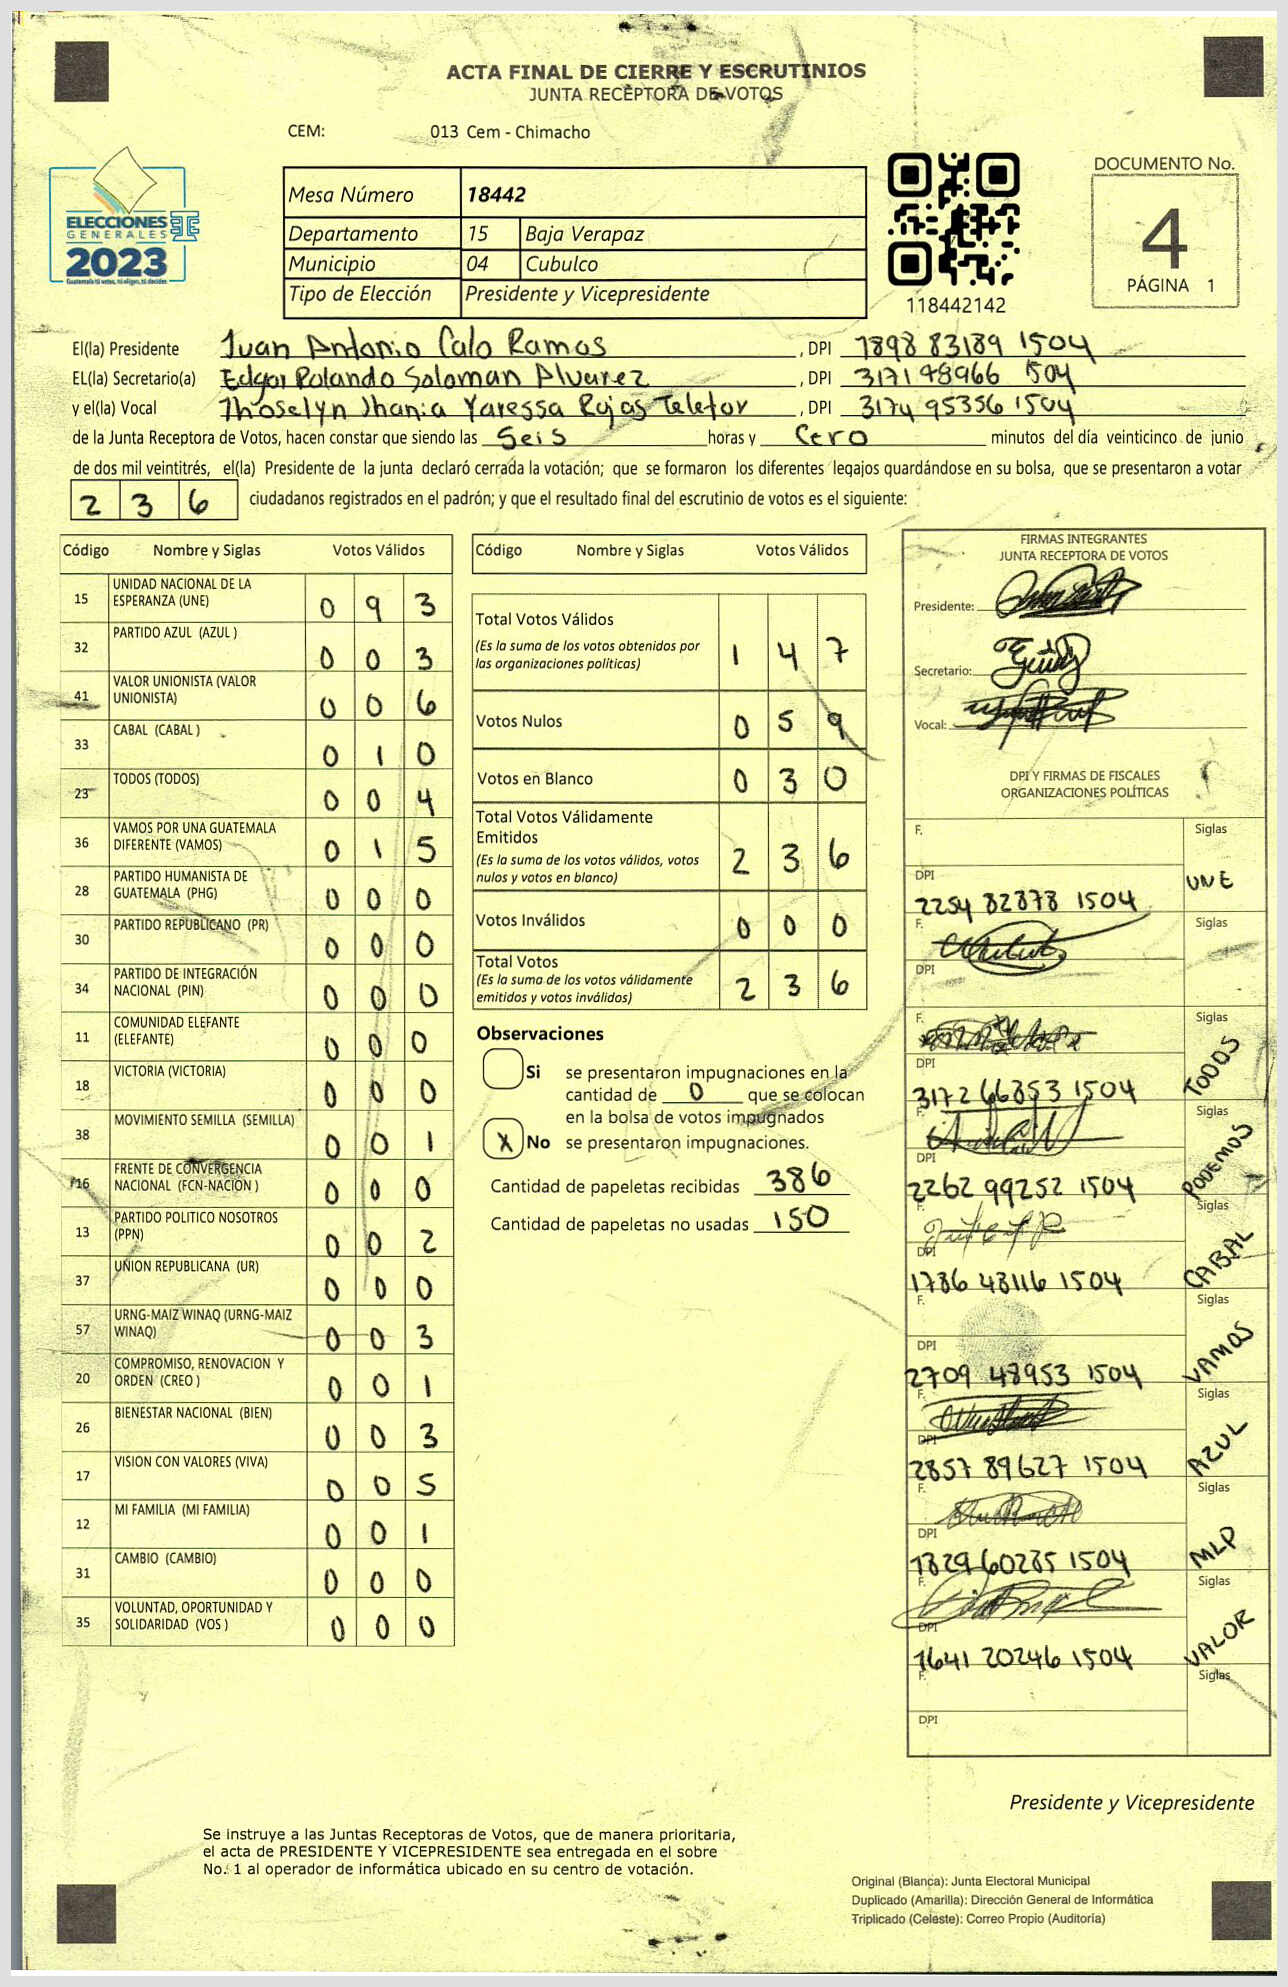 ACTA FINAL DE CIERRE Y ESCRUTINIOS
JUNTA RECEPTORA DE VOTOS
CEM: 013 Cem - Chimacho
ELECCIONES
GENERALES
2023
Guatemala tú votas, tú eliges, tú decides
Mesa Número 18442
Departamento 15 Baja Verapaz
Municipio 04 Cubulco
Tipo de Elección Presidente y Vicepresidente
118442142
DOCUMENTO No.
4
PÁGINA 1
El(la) Presidente Juan Antonio Calo Ramos , DPI 1898 83189 1504
EL(la) Secretario(a) Edgar Rolando Soloman Alvarez , DPI 3171 98966 1504
y el(la) Vocal Jhoselyn Jhania Yaressa Rojas Teletor , DPI 3174 95356 1504
de la Junta Receptora de Votos, hacen constar que siendo las Seis horas y Cero minutos del día veinticinco de junio
de dos mil veintitrés, el(la) Presidente de la junta declaró cerrada la votación; que se formaron los diferentes legajos guardándose en su bolsa, que se presentaron a votar
236 ciudadanos registrados en el padrón; y que el resultado final del escrutinio de votos es el siguiente:
Código Nombre y Siglas Votos Válidos
15 UNIDAD NACIONAL DE LA ESPERANZA (UNE) 0 9 3
32 PARTIDO AZUL (AZUL ) 0 0 3
41 VALOR UNIONISTA (VALOR UNIONISTA) 0 0 6
33 CABAL (CABAL ) 0 1 0
23 TODOS (TODOS) 0 0 4
36 VAMOS POR UNA GUATEMALA DIFERENTE (VAMOS) 0 1 5
28 PARTIDO HUMANISTA DE GUATEMALA (PHG) 0 0 0
30 PARTIDO REPUBLICANO (PR) 0 0 0
34 PARTIDO DE INTEGRACIÓN NACIONAL (PIN) 0 0 0
11 COMUNIDAD ELEFANTE (ELEFANTE) 0 0 0
18 VICTORIA (VICTORIA) 0 0 0
38 MOVIMIENTO SEMILLA (SEMILLA) 0 0 1
16 FRENTE DE CONVERGENCIA NACIONAL (FCN-NACION ) 0 0 0
13 PARTIDO POLITICO NOSOTROS (PPN) 0 0 2
37 UNION REPUBLICANA (UR) 0 0 0
57 URNG-MAIZ WINAQ (URNG-MAIZ WINAQ) 0 0 3
20 COMPROMISO, RENOVACION Y ORDEN (CREO ) 0 0 1
26 BIENESTAR NACIONAL (BIEN) 0 0 3
17 VISION CON VALORES (VIVA) 0 0 5
12 MI FAMILIA (MI FAMILIA) 0 0 1
31 CAMBIO (CAMBIO) 0 0 0
35 VOLUNTAD, OPORTUNIDAD Y SOLIDARIDAD (VOS ) 0 0 0
Código Nombre y Siglas Votos Válidos
Total Votos Válidos 1 4 7
(Es la suma de los votos obtenidos por
las organizaciones políticas)
Votos Nulos 0 5 9
Votos en Blanco 0 3 0
Total Votos Válidamente
Emitidos 2 3 6
(Es la suma de los votos válidos, votos
nulos y votos en blanco)
Votos Inválidos 0 0 0
Total Votos 2 3 6
(Es la suma de los votos válidamente
emitidos y votos inválidos)
Observaciones
Si se presentaron impugnaciones en la
cantidad de 0 que se colocan
en la bolsa de votos impugnados
X No se presentaron impugnaciones.
Cantidad de papeletas recibidas 386
Cantidad de papeletas no usadas 150
FIRMAS INTEGRANTES
JUNTA RECEPTORA DE VOTOS
Presidente:
Secretario:
Vocal:
DPI Y FIRMAS DE FISCALES
ORGANIZACIONES POLÍTICAS
F. Siglas
DPI 2254 82878 1504 UNE
F. Siglas
DPI
F. Siglas
DPI 3172 66353 1504 TODOS
F. Siglas
DPI 2262 99252 1504 PODEMOS
F. Siglas
DPI 1786 48116 1504 CABAL
F. Siglas
DPI 2709 48953 1504 VAMOS
F. Siglas
DPI 2857 89627 1504 AZUL
F. Siglas
DPI 1829 60285 1504 MLP
F. Siglas
DPI 1641 20246 1504 VALOR
F. Siglas
DPI
Presidente y Vicepresidente
Se instruye a las Juntas Receptoras de Votos, que de manera prioritaria,
el acta de PRESIDENTE Y VICEPRESIDENTE sea entregada en el sobre
No. 1 al operador de informática ubicado en su centro de votación.
Original (Blanca): Junta Electoral Municipal
Duplicado (Amarilla): Dirección General de Informática
Triplicado (Celeste): Correo Propio (Auditoría)